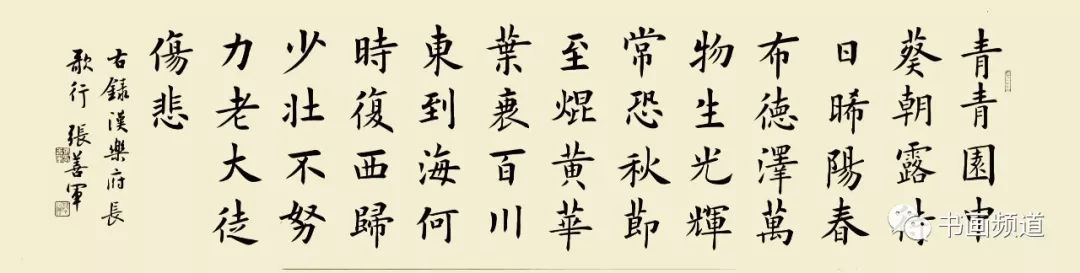 青青園中
葵朝露待
日晞陽春
布德澤萬
物生光輝
常恐秋節
至焜黃華
葉衰百川
東到海何
時復西歸
少壯不努
力老大徒
傷悲
古錄漢樂府長
歌行 張善軍
书画频道